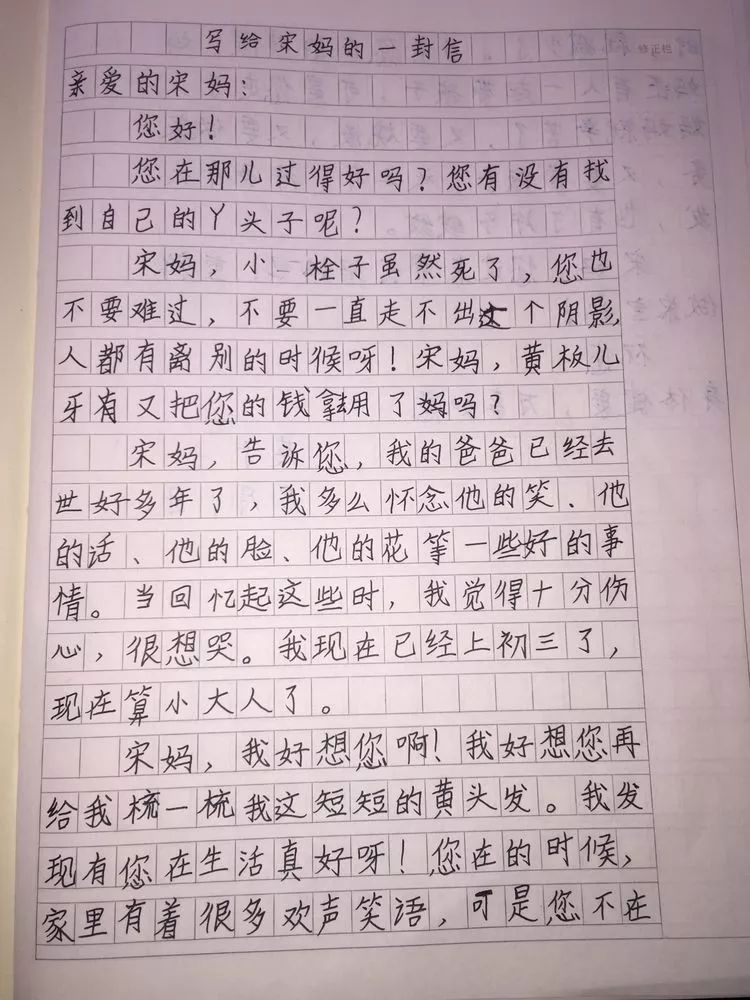 写给宋妈的一封信
修正栏
亲爱的宋妈：
您好！
您在那儿过得好吗？您有没有找
到自己的丫头子呢？
宋妈，小栓子虽然死了，您也
不要难过，不要一直走不出这个阴影，
人都有离别的时候呀！宋妈，黄板儿
牙有又把您的钱拿去用了妈吗？
宋妈，告诉您，我的爸爸已经去
世好多年了，我多么怀念他的笑、他
的话、他的脸、他的花等一些好的事
情。当回忆起这些时，我觉得十分伤
心，很想哭。我现在已经上初三了，
现在算小大人了。
宋妈，我好想您啊！我好想您再
给我梳一梳我这短短的黄头发。我发
现有您在生活真好呀！您在的时候，
家里有着很多欢声笑语，可是，您不在